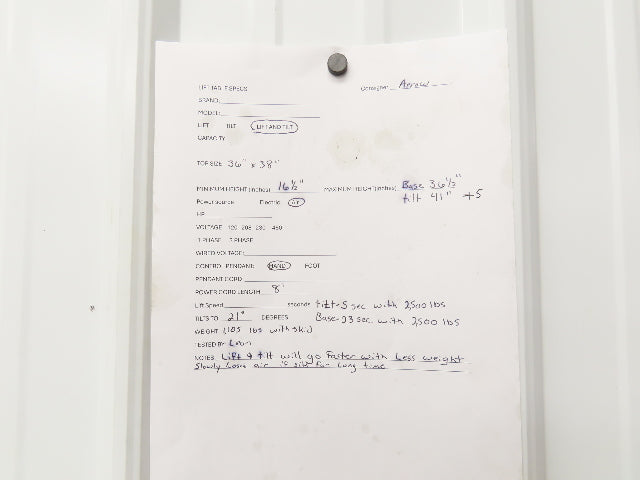 LIFT TABLE SPECS Consigner Arrow
BRAND:
MODEL:
LIFT TILT LIFT AND TILT
CAPACITY
TOP SIZE 36" x 38"
MINIMUM HEIGHT (inches) 16½" MAXIMUM HEIGHT (inches) Base 36½"
tilt 41" +5
Power source Electric air
HP
VOLTAGE 120 208 230 460
1 PHASE 3 PHASE
WIRED VOLTAGE:
CONTROL PENDANT: HAND FOOT
PENDANT CORD
POWER CORD LENGTH 8'
Lift Speed seconds tilt-5 sec with 2,500 lbs
TILTS TO 21° DEGREES Base-23 sec. with 2,500 lbs
WEIGHT lbs with skid
TESTED BY
NOTES: Lift & tilt will go Faster with Less weight
Slowly Loses air if for Long time